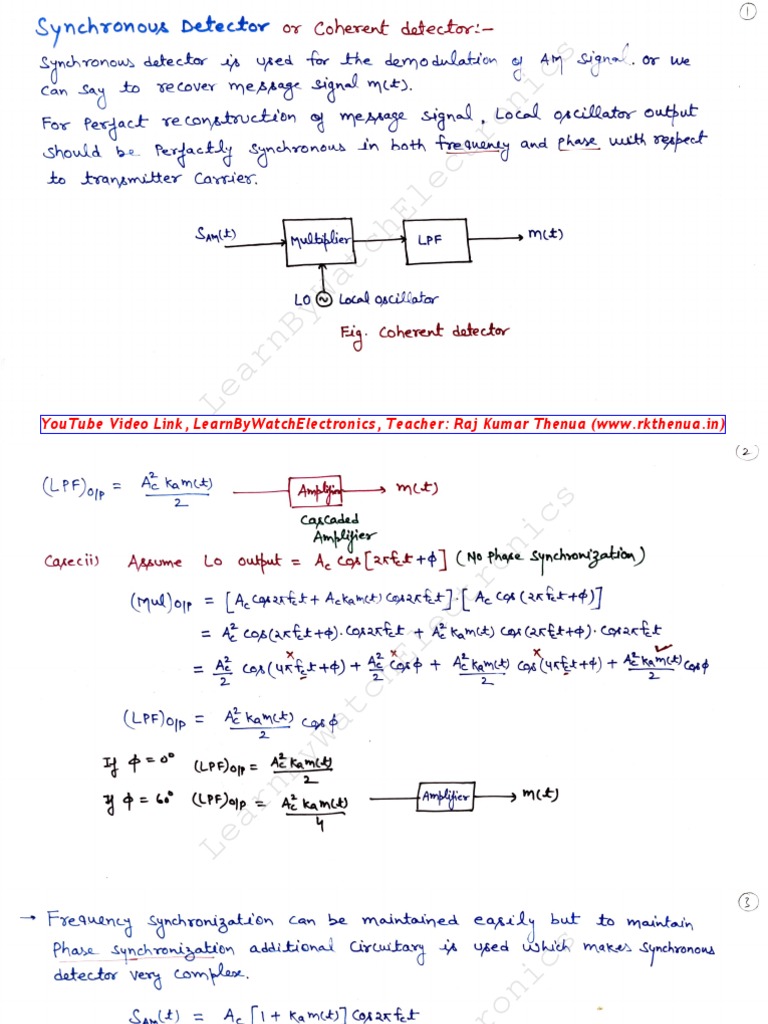 ①
Synchronous Detector or Coherent detector:-
Synchronous detector is used for the demodulation of AM signal. or we
can say to recover message signal m(t).
For Perfact reconstruction of message signal, Local oscillator output
should be Perfactly synchronous in both frequency and phase with respect
to transmitter carrier.
S_AM(t) Multiplier LPF m(t)
LO Local oscillator
Fig. Coherent detector
LearnByWatchElectronics
YouTube Video Link, LearnByWatchElectronics, Teacher: Raj Kumar Thenua (www.rkthenua.in)
②
(LPF)o/p = Ac² Ka m(t) / 2 Amplifier m(t)
Cascaded
Amplifier
Case(ii) Assume LO output = Ac Cos[2πfct+φ] (No Phase Synchronization)
(Mul)o/p = [Ac Cos2πfct + Ac Ka m(t) Cos2πfct].[Ac Cos(2πfct+φ)]
= Ac² Cos(2πfct+φ).Cos2πfct + Ac² Ka m(t) Cos(2πfct+φ).Cos2πfct
= Ac²/2 Cos(4πfct+φ) + Ac²/2 Cosφ + Ac² Ka m(t)/2 Cos(4πfct+φ) + Ac² Ka m(t)/2 Cosφ
(LPF)o/p = Ac² Ka m(t)/2 Cosφ
If φ = 0° (LPF)o/p = Ac² Ka m(t)/2
If φ = 60° (LPF)o/p = Ac² Ka m(t)/4 Amplifier m(t)
LearnByWatchElectronics
③
→ Frequency synchronization can be maintained easily but to maintain
Phase synchronization additional circuitary is used which makes synchronous
detector very complex.
S_AM(t) = Ac[1 + Ka m(t)] Cos2πfct
onics